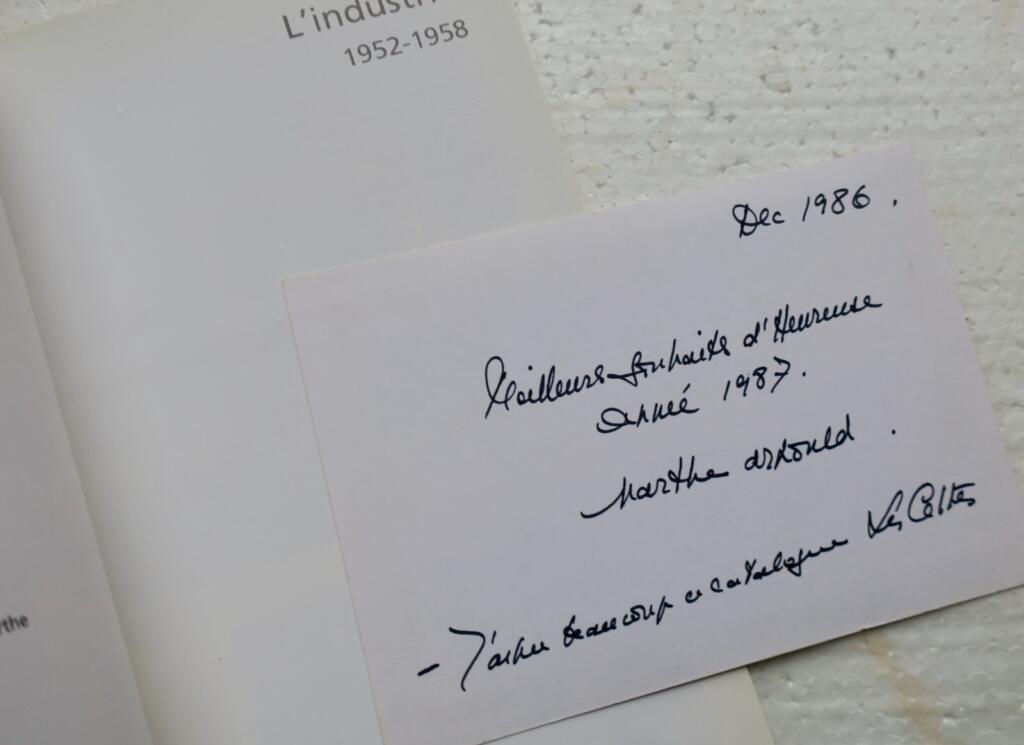 L'industri
1952-1958
rthe
Dec 1986.
Meilleurs souhaits d'Heureuse
année 1987.
Marthe arnould.
- J'aime beaucoup ce catalogue Les Celtes